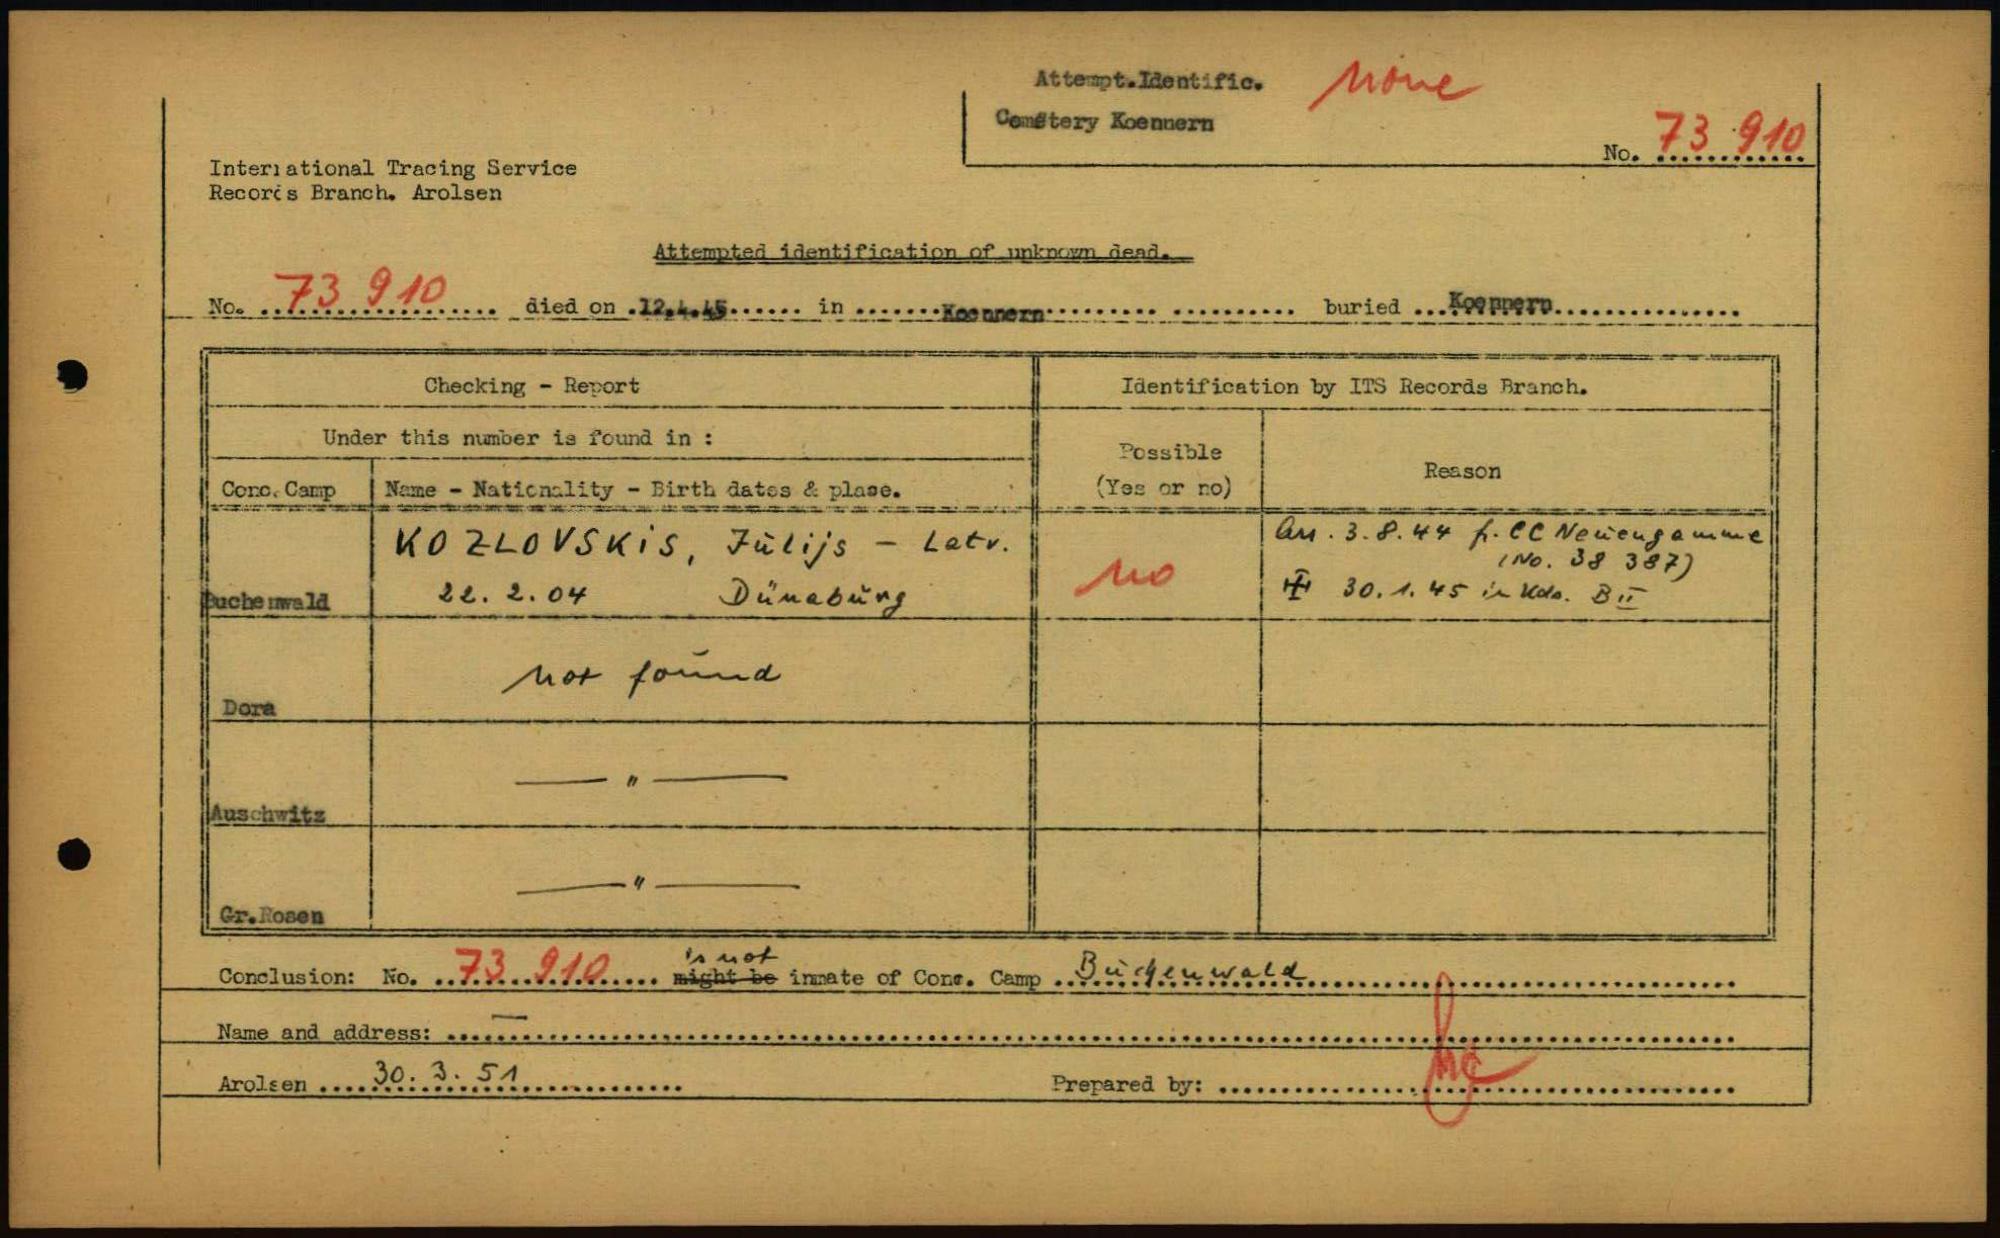 Attempt.Identific. none
Cemetery Koennern
No. 73 910
International Tracing Service
Records Branch. Arolsen
Attempted identification of unknown dead.
No. 73 910 died on 12.4.45 in Koennern buried Koennern
Checking - Report
Identification by ITS Records Branch.
Under this number is found in :
Possible
(Yes or no)
Reason
Conc. Camp
Name - Nationality - Birth dates & plase.
KOZLOVSKIS, Jūlijs - Latv.
Arr. 3.8.44 fr. CC Neuengamme
(No. 38 387)
Buchenwald
22. 2. 04 Dünaburg
no
30.1.45 in Kdo. B II
Dora
not found
Auschwitz
— " —
Gr.Rosen
— " —
Conclusion: No. 73 910 might be is not inmate of Conc. Camp Buchenwald
Name and address: —
Arolsen 30. 3. 51
Prepared by: